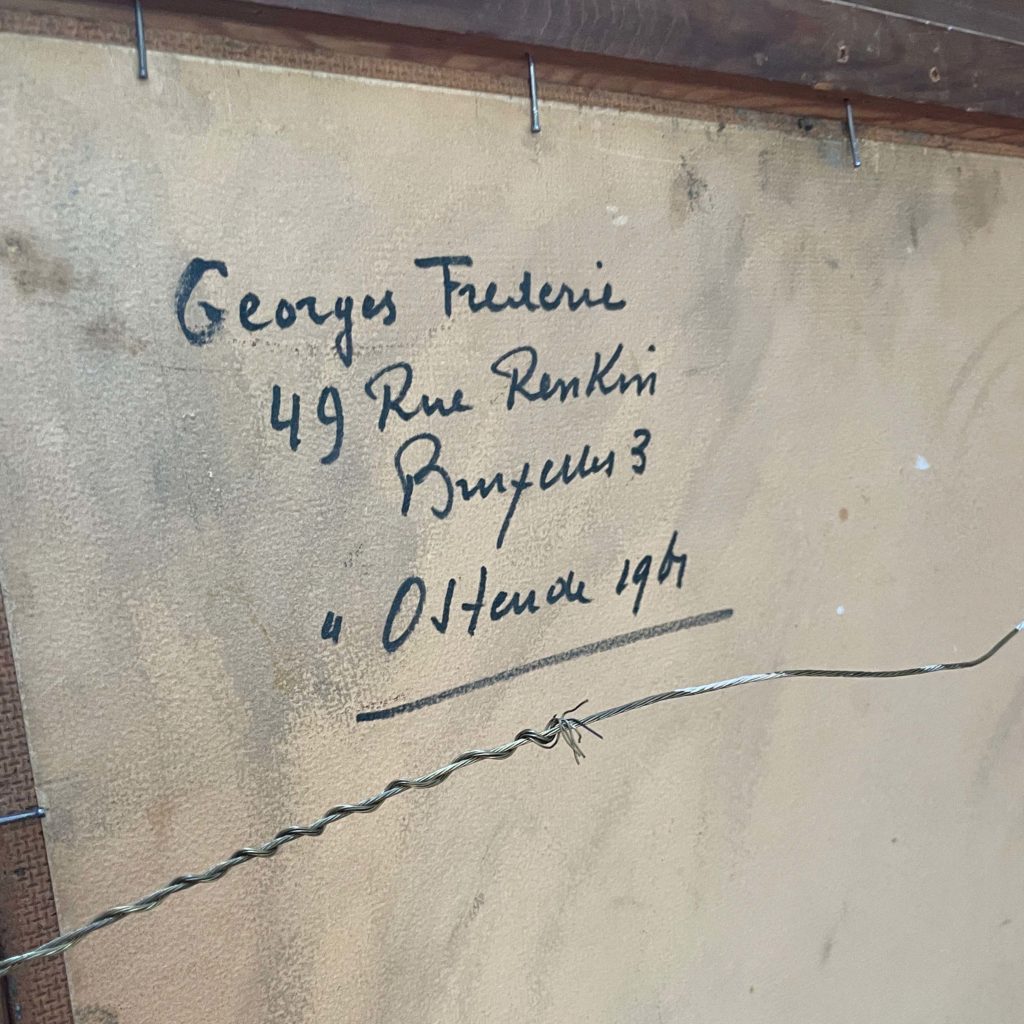 Georges Frederic
49 Rue Renkin
Bruxelles 3
" Ostende 1961